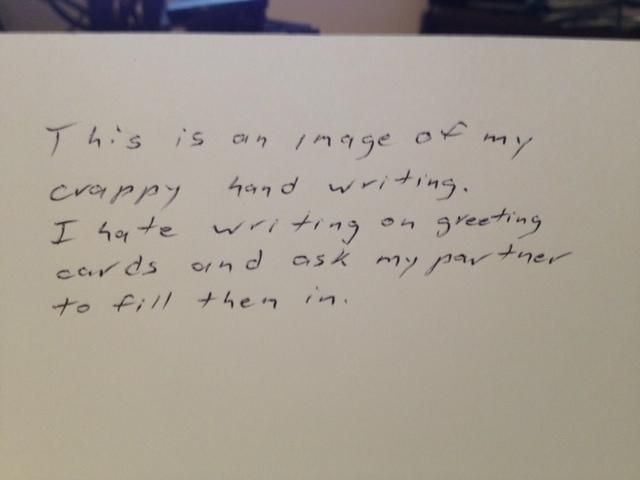 This is an image of my
crappy hand writing.
I hate writing on greeting
cards and ask my partner
to fill them in.